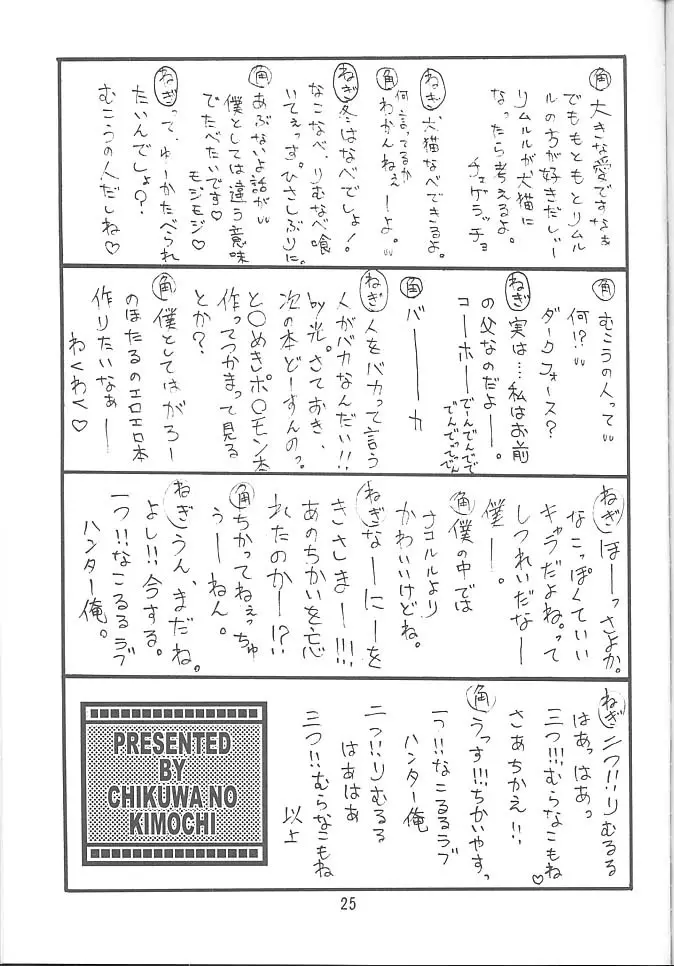 角 大きな愛ですなぁ
でももともとリムル
ルの方が好きだしぃー
リムルルが犬猫に
なったら考えるよ。
チェゲラッチョ
ねぎ 犬猫なべできるよ。
角 何言ってるか
わかんねぇーよ。
ねぎ 冬はなべでしょ!
なこなべ、りむなべ喰
いてぇっす。ひさしぶりに。
角 あぶないよ話が
僕としては違う意味
でたべたいです♡
モジモジ♡
ねぎ って、ゆーかたべられ
たいんでしょ?
むこうの人だしね♡
角 むこうの人って
何!?
ダークフォース?
ねぎ 実は…私はお前
の父なのだよー。
コーホー でーんでんでで
でんでってでん
角 バーーーカ
ねぎ 人をバカって言う
人がバカなんだい!!
by光。さておき、
次の本どーすんの?
と〇めきポ〇モン本
作ってつかまって見る
とか?
角 僕としてはがろー
のほたるのエロエロ本
作りたいなぁー
わくわく♡
ねぎ ほーっさよか。
なこっぽくていい
キャラだよね。って
しつれいだなー
僕ー。
角 僕の中では
ナコルルより
かわいいけどね。
ねぎ なーにーを
きさしまー!!!
あのちかいを忘
れたのかー!?
角 ちかってねぇっちゅ
うーねん。
ねぎ うん、まだね。
よし!!今する。
一つ!!なこるるラブ
ハンター俺。
ねぎ 二つ!!りむるる
はあっはあっ
三つ!!!むらなこもね♡
さあちかえ!!
角 うっす!!!ちかいやすっ
一っ!!なこるるラブ
ハンター俺
二っ!!りむるる
はあはあ
三つ!!むらなこもね
以上
PRESENTED
BY
CHIKUWA NO
KIMOCHI
25